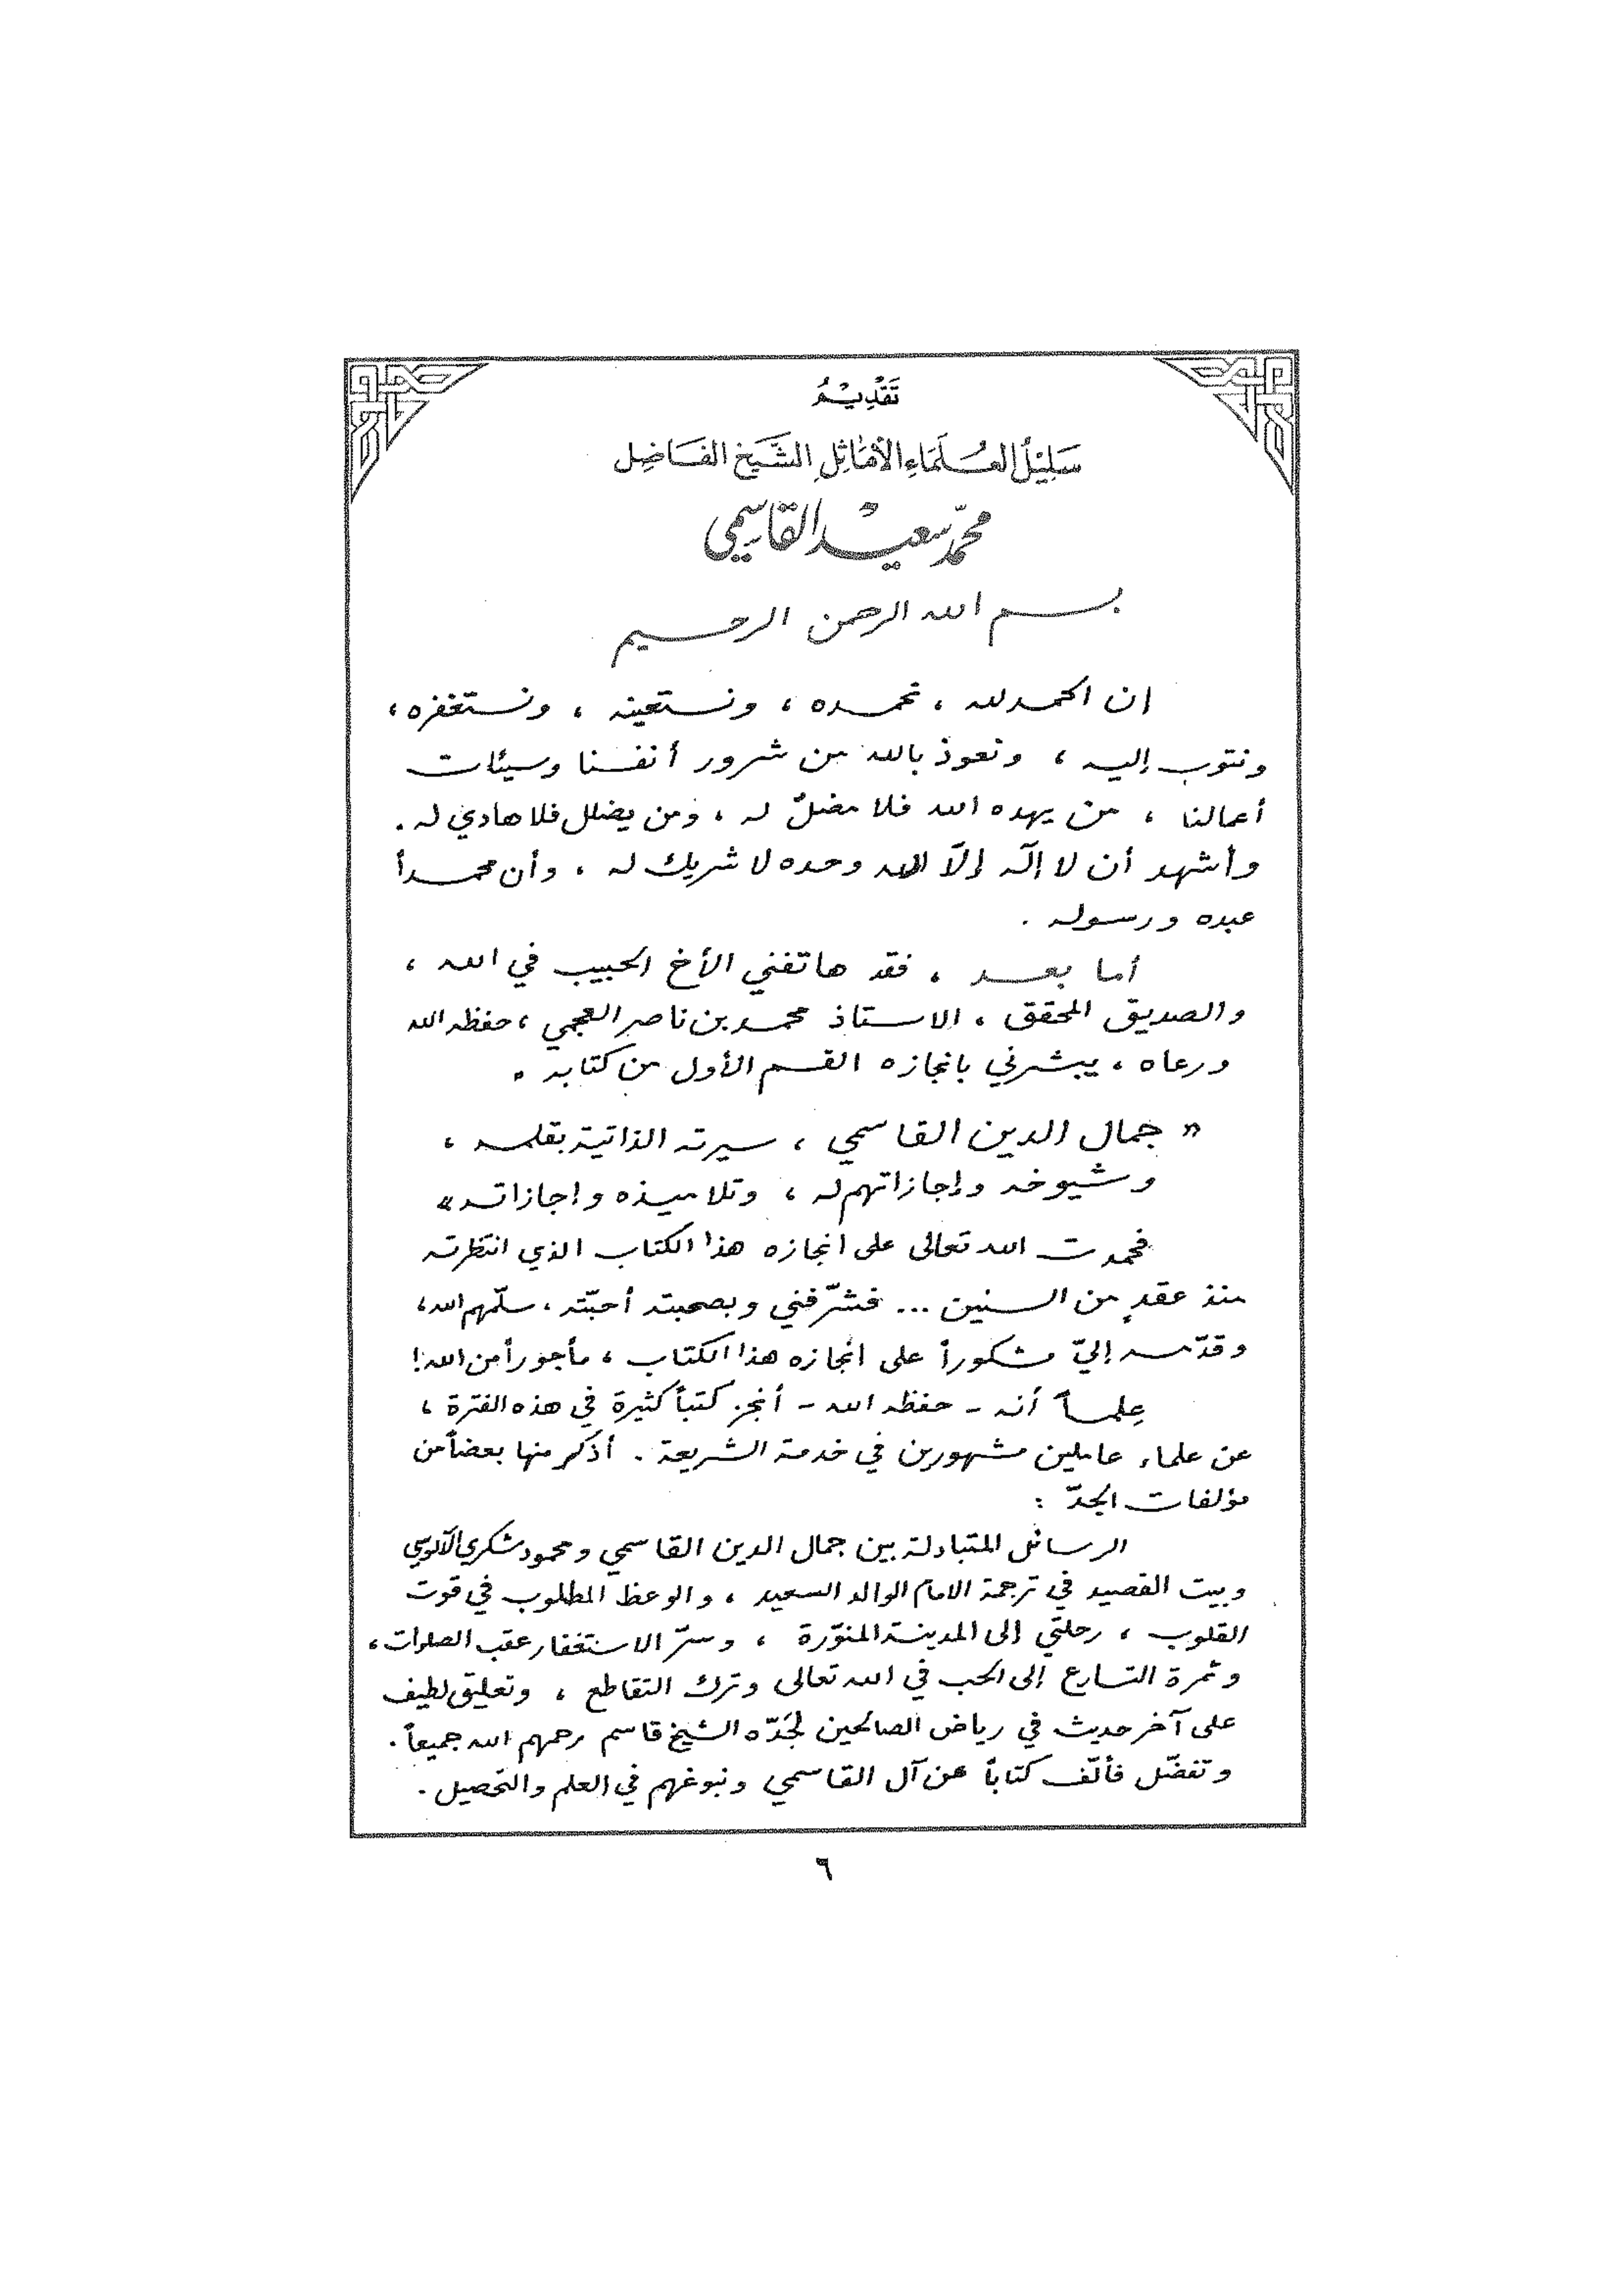 تَقْدِيْمُ
سَلِيْلُ العُلَمَاءِ الأَمَاثِلِ الشَّيْخِ الفَاضِل
محمّد سعيْد القاسمي
بسم الله الرحمن الرحيم
إن الحمد لله ، نحمده ، ونستعينه ، ونستغفره ،
ونتوب إليه ، ونعوذ بالله من شرور أنفسنا وسيئات
أعمالنا ، من يهده الله فلا مضلّ له ، ومن يضلل فلا هادي له .
وأشهد أن لا إلَه إلاّ الله وحده لا شريك له ، وأن محمداً
عبده ورسوله .
أما بعد ، فقد هاتفني الأخ الحبيب في الله ،
والصديق المحقق ، الاستاذ محمد بن ناصر العجمي ، حفظه الله
ورعاه ، يبشرني بانجازه القسم الأول من كتابه .
« جمال الدين القاسمي ، سيرته الذاتية بقلمه ،
وشيوخه وإجازاتهم له ، وتلاميذه وإجازاته »
فحمدت الله تعالى على انجازه هذا الكتاب الذي انتظرته
منذ عقدٍ من السنين ... فشرّفني وبصحبته أحبّته ، سلّمهم الله ،
وقدّمه إليّ مشكوراً على انجازه هذا الكتاب ، مأجوراً من الله !
عِلماً أنه - حفظه الله - أنجز كتباً كثيرة في هذه الفترة ،
عن علماء عاملين مشهورين في خدمة الشريعة . أذكر منها بعضاً من
مؤلفات الجدّ :
الرسائل المتبادلة بين جمال الدين القاسمي ومحمود شكري الآلوسي
وبيت القصيد في ترجمة الامام الوالد السعيد ، والوعظ المطلوب في قوت
القلوب ، رحلتي إلى المدينة المنوّرة ، وسرّ الاستغفار عقب الصلوات ،
وثمرة التسارع إلى الحب في الله تعالى وترك التقاطع ، وتعليق لطيف
على آخر حديث في رياض الصالحين لجَدّه الشيخ قاسم رحمهم الله جميعاً .
وتفضّل فألّف كتاباً عن آل القاسمي ونبوغهم في العلم والتحصيل .
٦